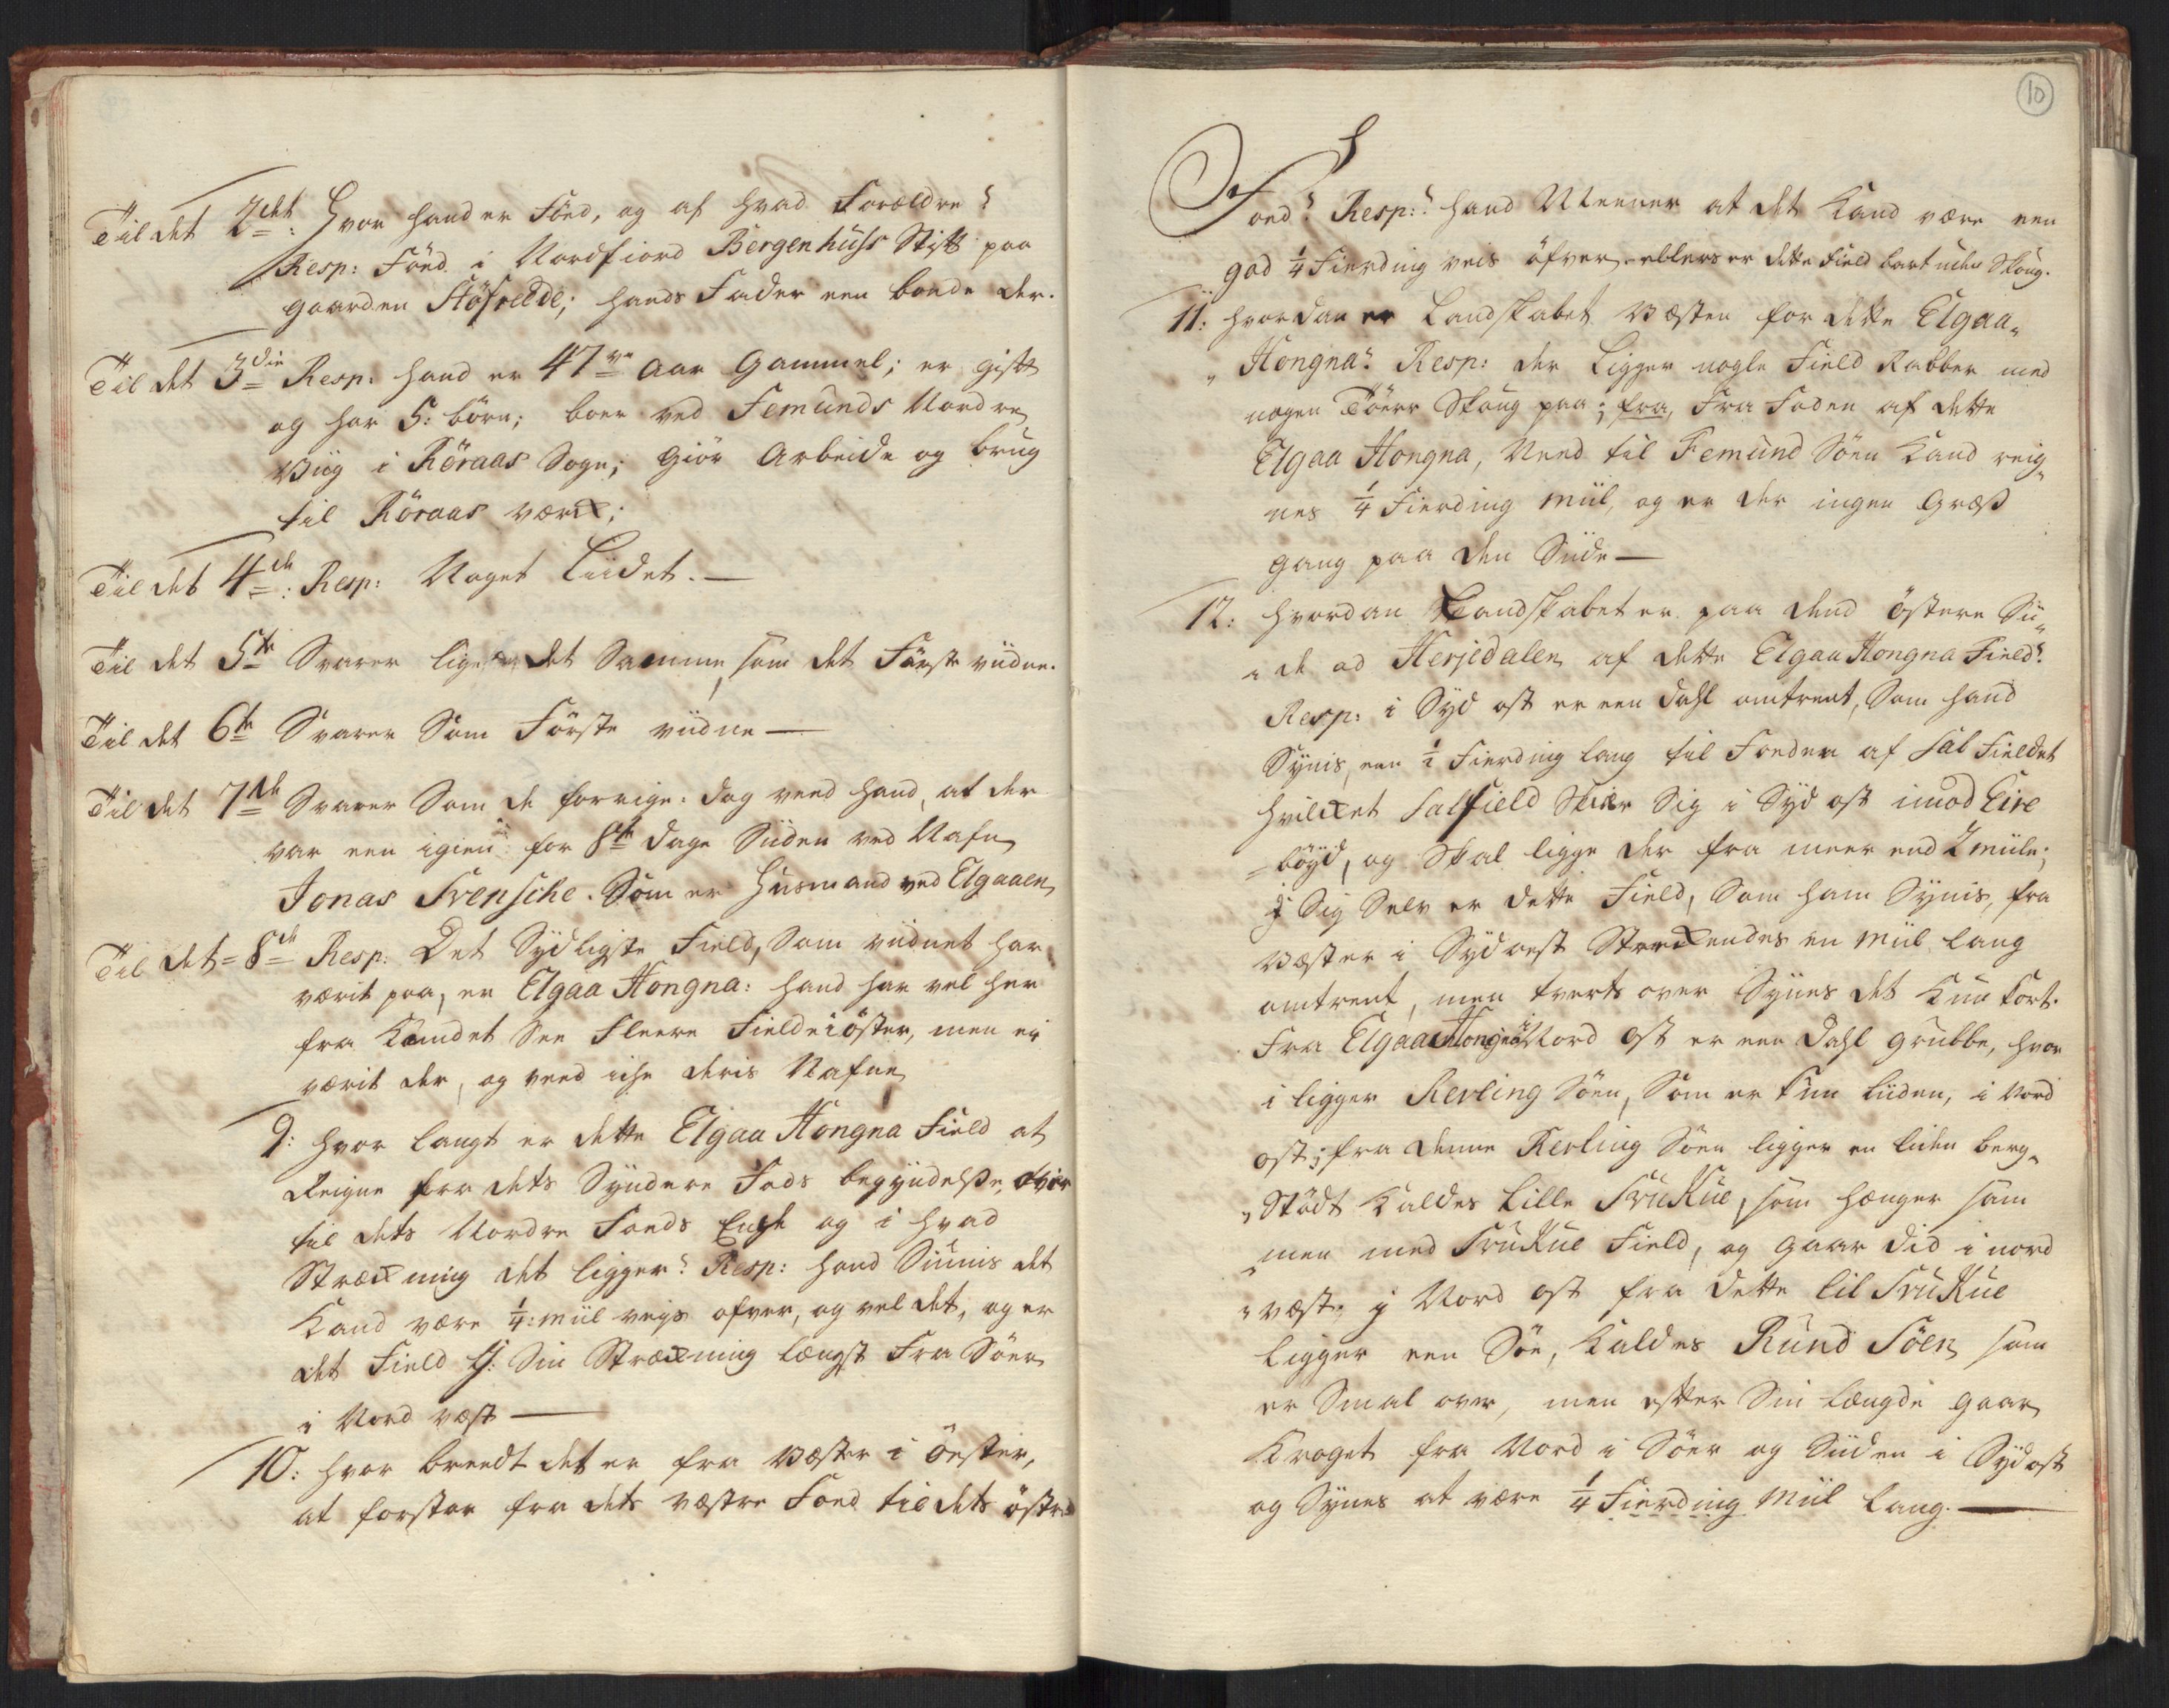 Til det 2det: Hvor hand er Föed, og af hvad Forældre?
Resp: Föed i Nordfiord Bergenhuhs Stift paa
gaarden Stöfrelde; hands Fader een bonde der.
Til det 3die Resp: hand er 47ve Aar Gammel; er gift
og har 5: börn; boer ved Femunds Nordre
Viig i Röraas Sogn; giör Arbeide og brug
til Röraas værck;
Til det 4de: Resp: Noget Liidet.—
Til det 5te Svarer lige det Samme, som det Förste viidne.
Til det 6te Svarer Som Förste viidne—
Til det 7de Svarer Som de forrige: dog veed hand, at der
var een igien for 8te dage Siiden ved Nafn
Jonas Svensche. Som er Huusmand ved Elgaaen
Til det=8de Resp: Det Sydligste Field, Som viidnet har
værit paa, er Elgaa Hongna: hand har vel her
fra Kundet See Fleere Fielde i öster, men ei
værit der, og veed iche deris Nafne
9: hvor langt er dette Elgaa Hongna Field at
Reigne fra dets Syndere Fods begyndelse, over
til dets Nordre Foeds Ende og i hvad
Strækning det ligger? Resp: hand Siünis det
Kand være 1/4: miil veys ofver, og vel det, og er
det Field i Sin Strækning længst Fra Söer
i Nord væst—
10: hvor breedt det er fra Væster i Öester,
at forstaa fra dets væstre Foed til dets östre
10
Foed? Resp:? hand Meener at det Kand være een
god 1/4 Fierding veis öfver. ellers er dette Field bart uden Skoug.
11: hvordan er Landskabet Væsten for dette Elgaa„
„Hongna? Resp: der Ligger nogle Field Rabber med
nogen Töerr Skoug paa; fra, Fra Foden af dette
Elgaa Hongna, Need til Femund Söen Kand reig„
nes 1/4 Fierding Miil, og er der ingen Græs
gang paa den Siide—
12: hvordan Landskabet er paa dend östere Sii„
„de ad Herjedalen af dette Elgaa Hongna Field?
Resp: i Syd ost er een dahl omtrent, Som hand
Synis, een 1/2 Fierding lang til Foeden af Sal Fieldet
hvilcket Salfield Sig i Syd ost imod Eire
=böyd, og Skal ligge der fra meer end 2 miile;
I Sig Selv er dette Field, Som ham Synis, fra
Væster i Sydoest Streckendes en Miil lang
omtrent, men tverts over Synes det Kun kort.
Fra Elgaa Hongna i Nord Ost er een Dahl grubbe, hvor
i ligger Revling Söen, Som er Kun liiden, i Nord
Ost; fra denne Revling Söen ligger en liden berg„
„Stödt Kaldes Lille SvuKue, som hænger sam
„men med SvuKue Field, og gaar did i nord
„væst; i Nord Ost fra dette lil SvuKue
ligger een Söe, Kaldes Rund Söen, som
er Smal over, men efter Sin Længde gaar
Kroget fra Nord i Söer og Siiden i Sydost
og Synes at være 1/4 Fierding Miil lang.—